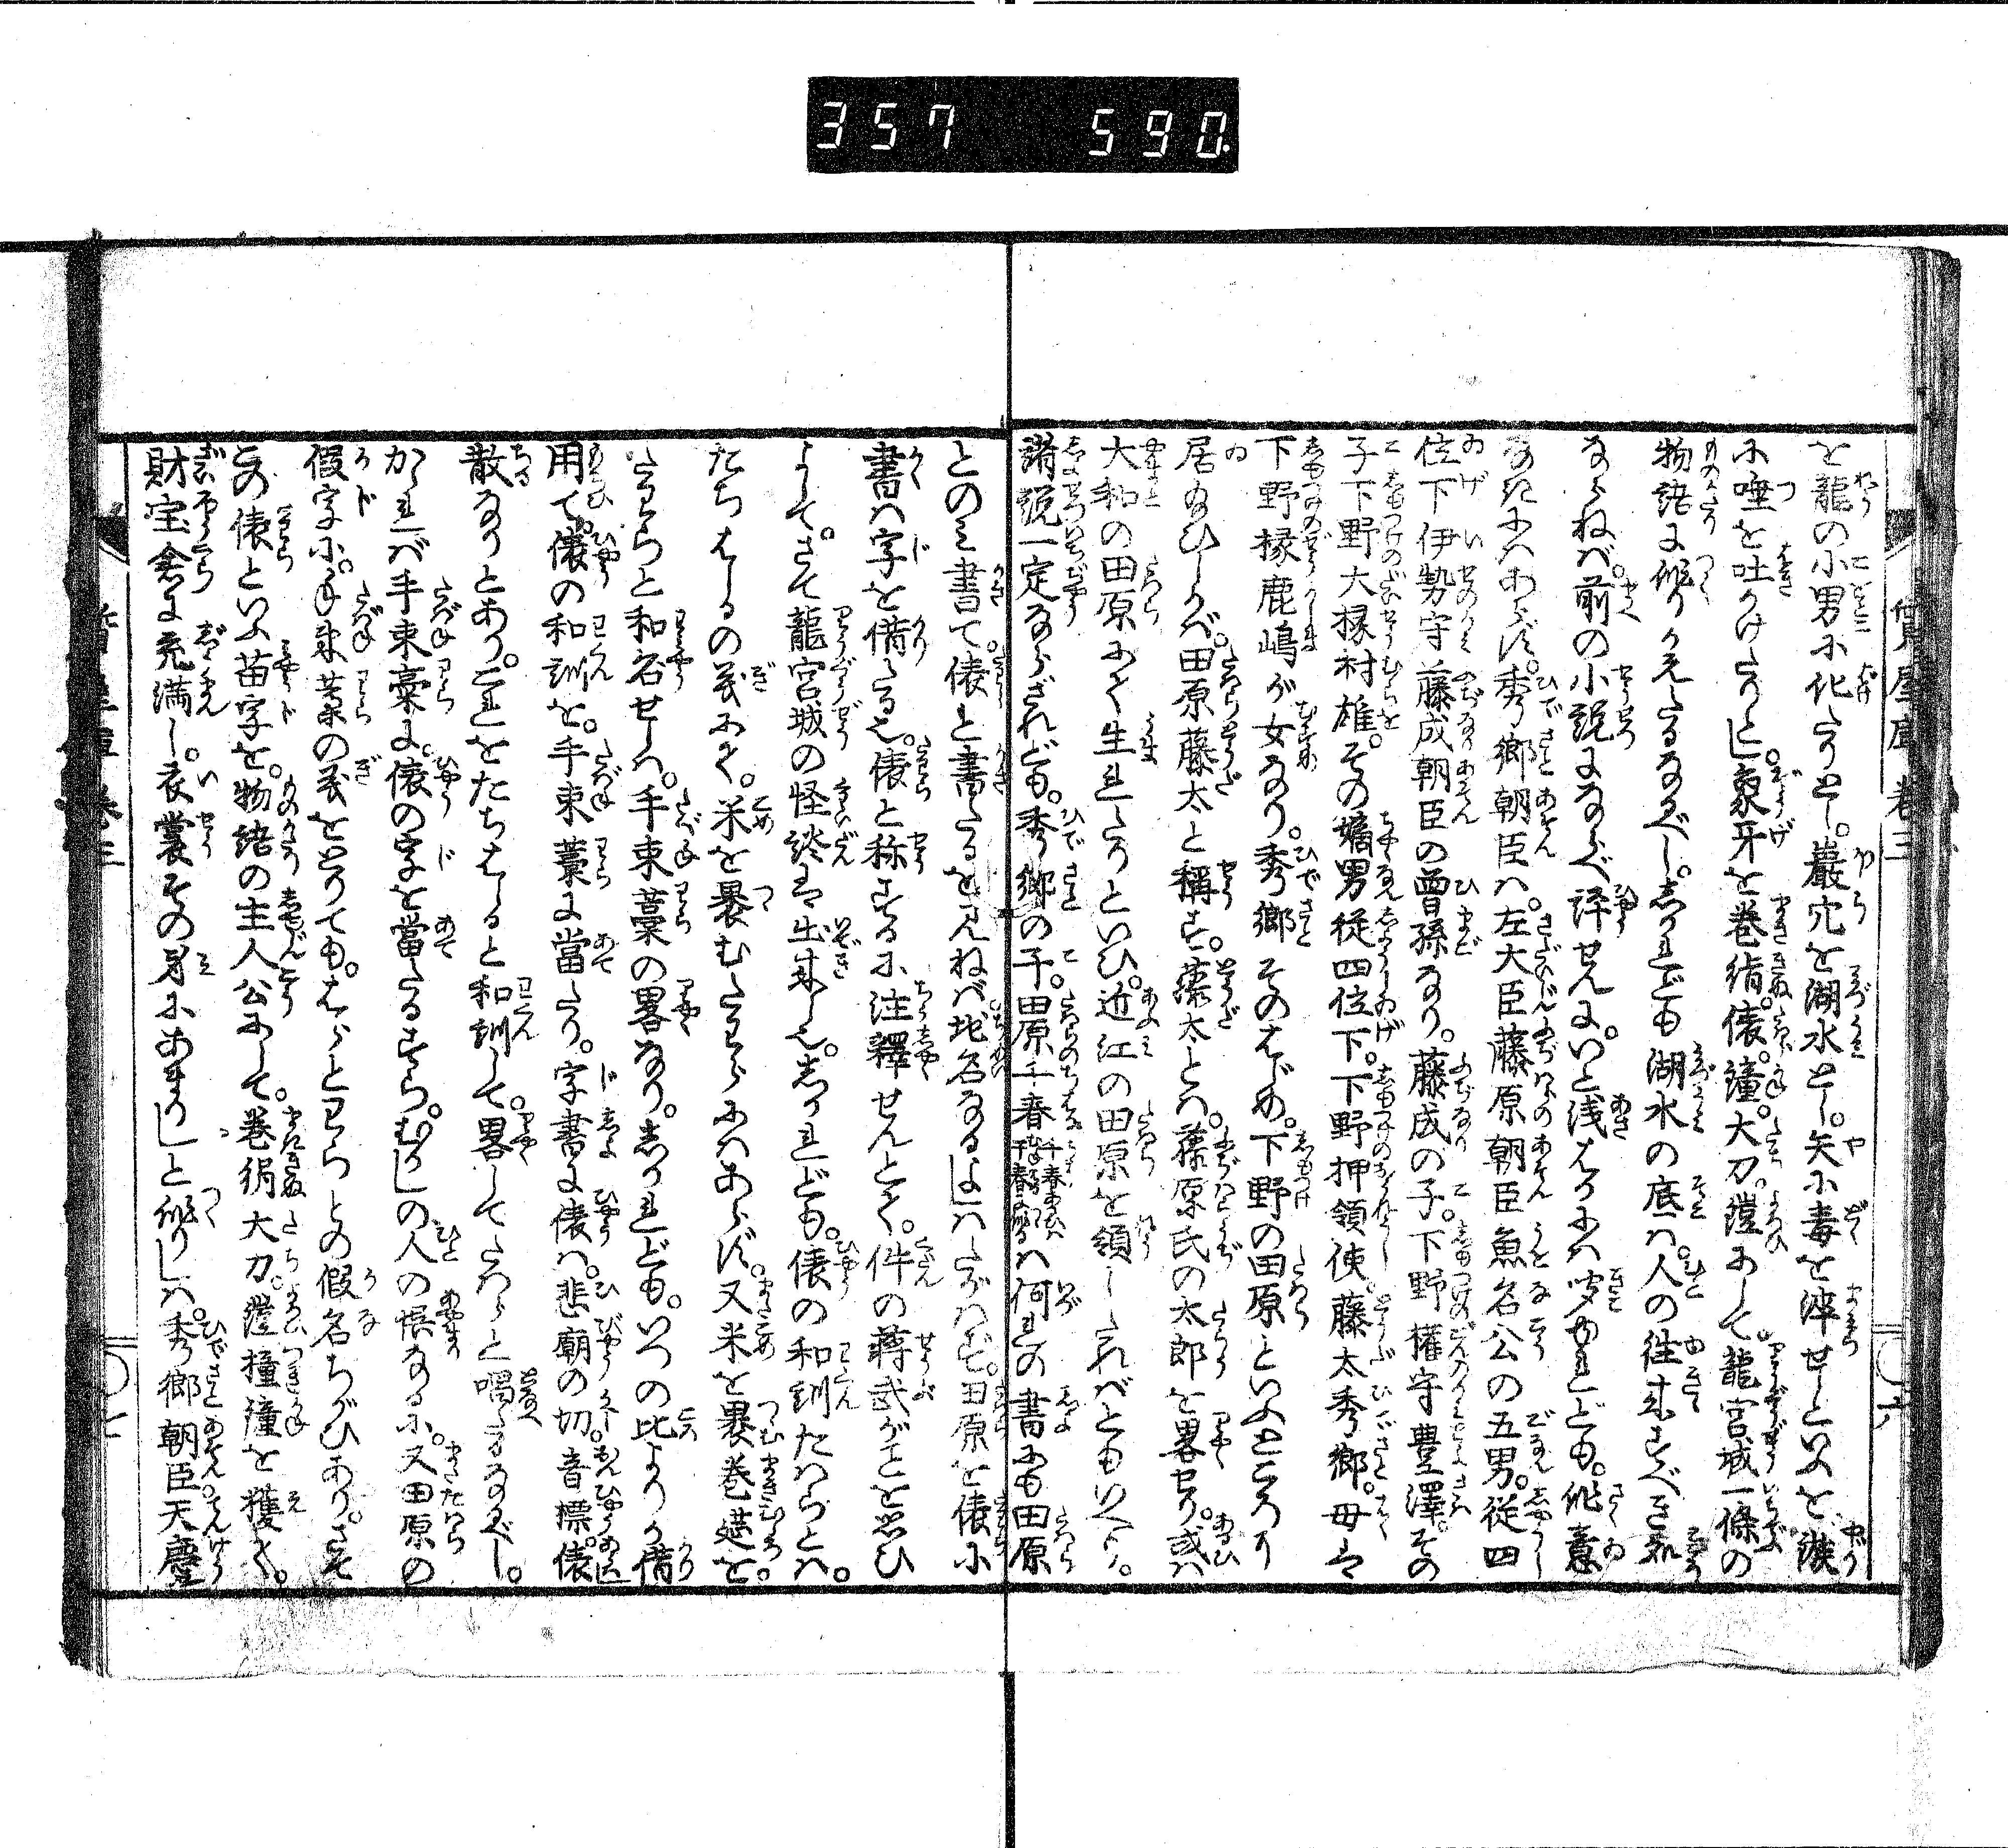 357 590
を龍の小男に化たりとし。巌穴を湖水とし。矢に毒を淬せしといふを鏃
に唾を吐かけたりとし。象牙を巻絹。俵。鐘。大刀。鎧にして。龍宮城一條の
物語に作りかえたるなるべし。しかれども湖水の底は。人の往来すべき
ならねば。前の小説にならべ評せんに。いと浅はかには聞ゆれども。作意
なきにはあらず。秀郷朝臣は。左大臣藤原朝臣魚名公の五男。従四
位下伊勢守藤成朝臣の曽孫なり。藤成の子。下野権守豊澤。その
子下野大掾村雄。その嫡男従四位下。下野押領使。藤太秀郷。母は
下野掾鹿嶋が女なり。秀郷そのはじめ。下野の田原といふところに
居給ひしかば。田原藤太と稱す。藤太とは。藤原氏の太郎を畧せり。或は
大和の田原にて生れたりといひ。近江の田原を領したればともいへり。
諸説一定ならざれども。秀郷の子。田原千春は何れの書にも田原
とのみ書て。俵と書たるを見ねば地名なるよしはたがはず。田原を俵に
書は字を借たる也。俵と称するに注釋せんとて。件の蒋武がことを思ひ
よして。さて龍宮城の怪談は出来し也。しかれども。俵の和訓たはらとは。
たちはしるの義にて。米を褁むたわらにはあらず。又米を褁む巻莚を。
たわらと和名せしは。手束藁の畧なり。しかれども。いつの比よりか借
用て。俵の和訓を。手束藁に當たり。字書に俵は。悲廟の切。音標。俵
散なりとあり。これをたちはしると和訓して。畧してたはらと唱るなるべし。
かゝれば手束藁に。俵の字を當たるすら。むかしの人の悞なるに。又田原の
假字に。手束藁の義をとりても。はらとわらとの假名ちがひあり。さて
この俵といふ苗字を。物語の主人公にして。巻絹大刀。鎧撞鐘を獲て。
財宝倉に充満し。衣裳その身にあまりしと作りしは。秀郷朝臣天慶